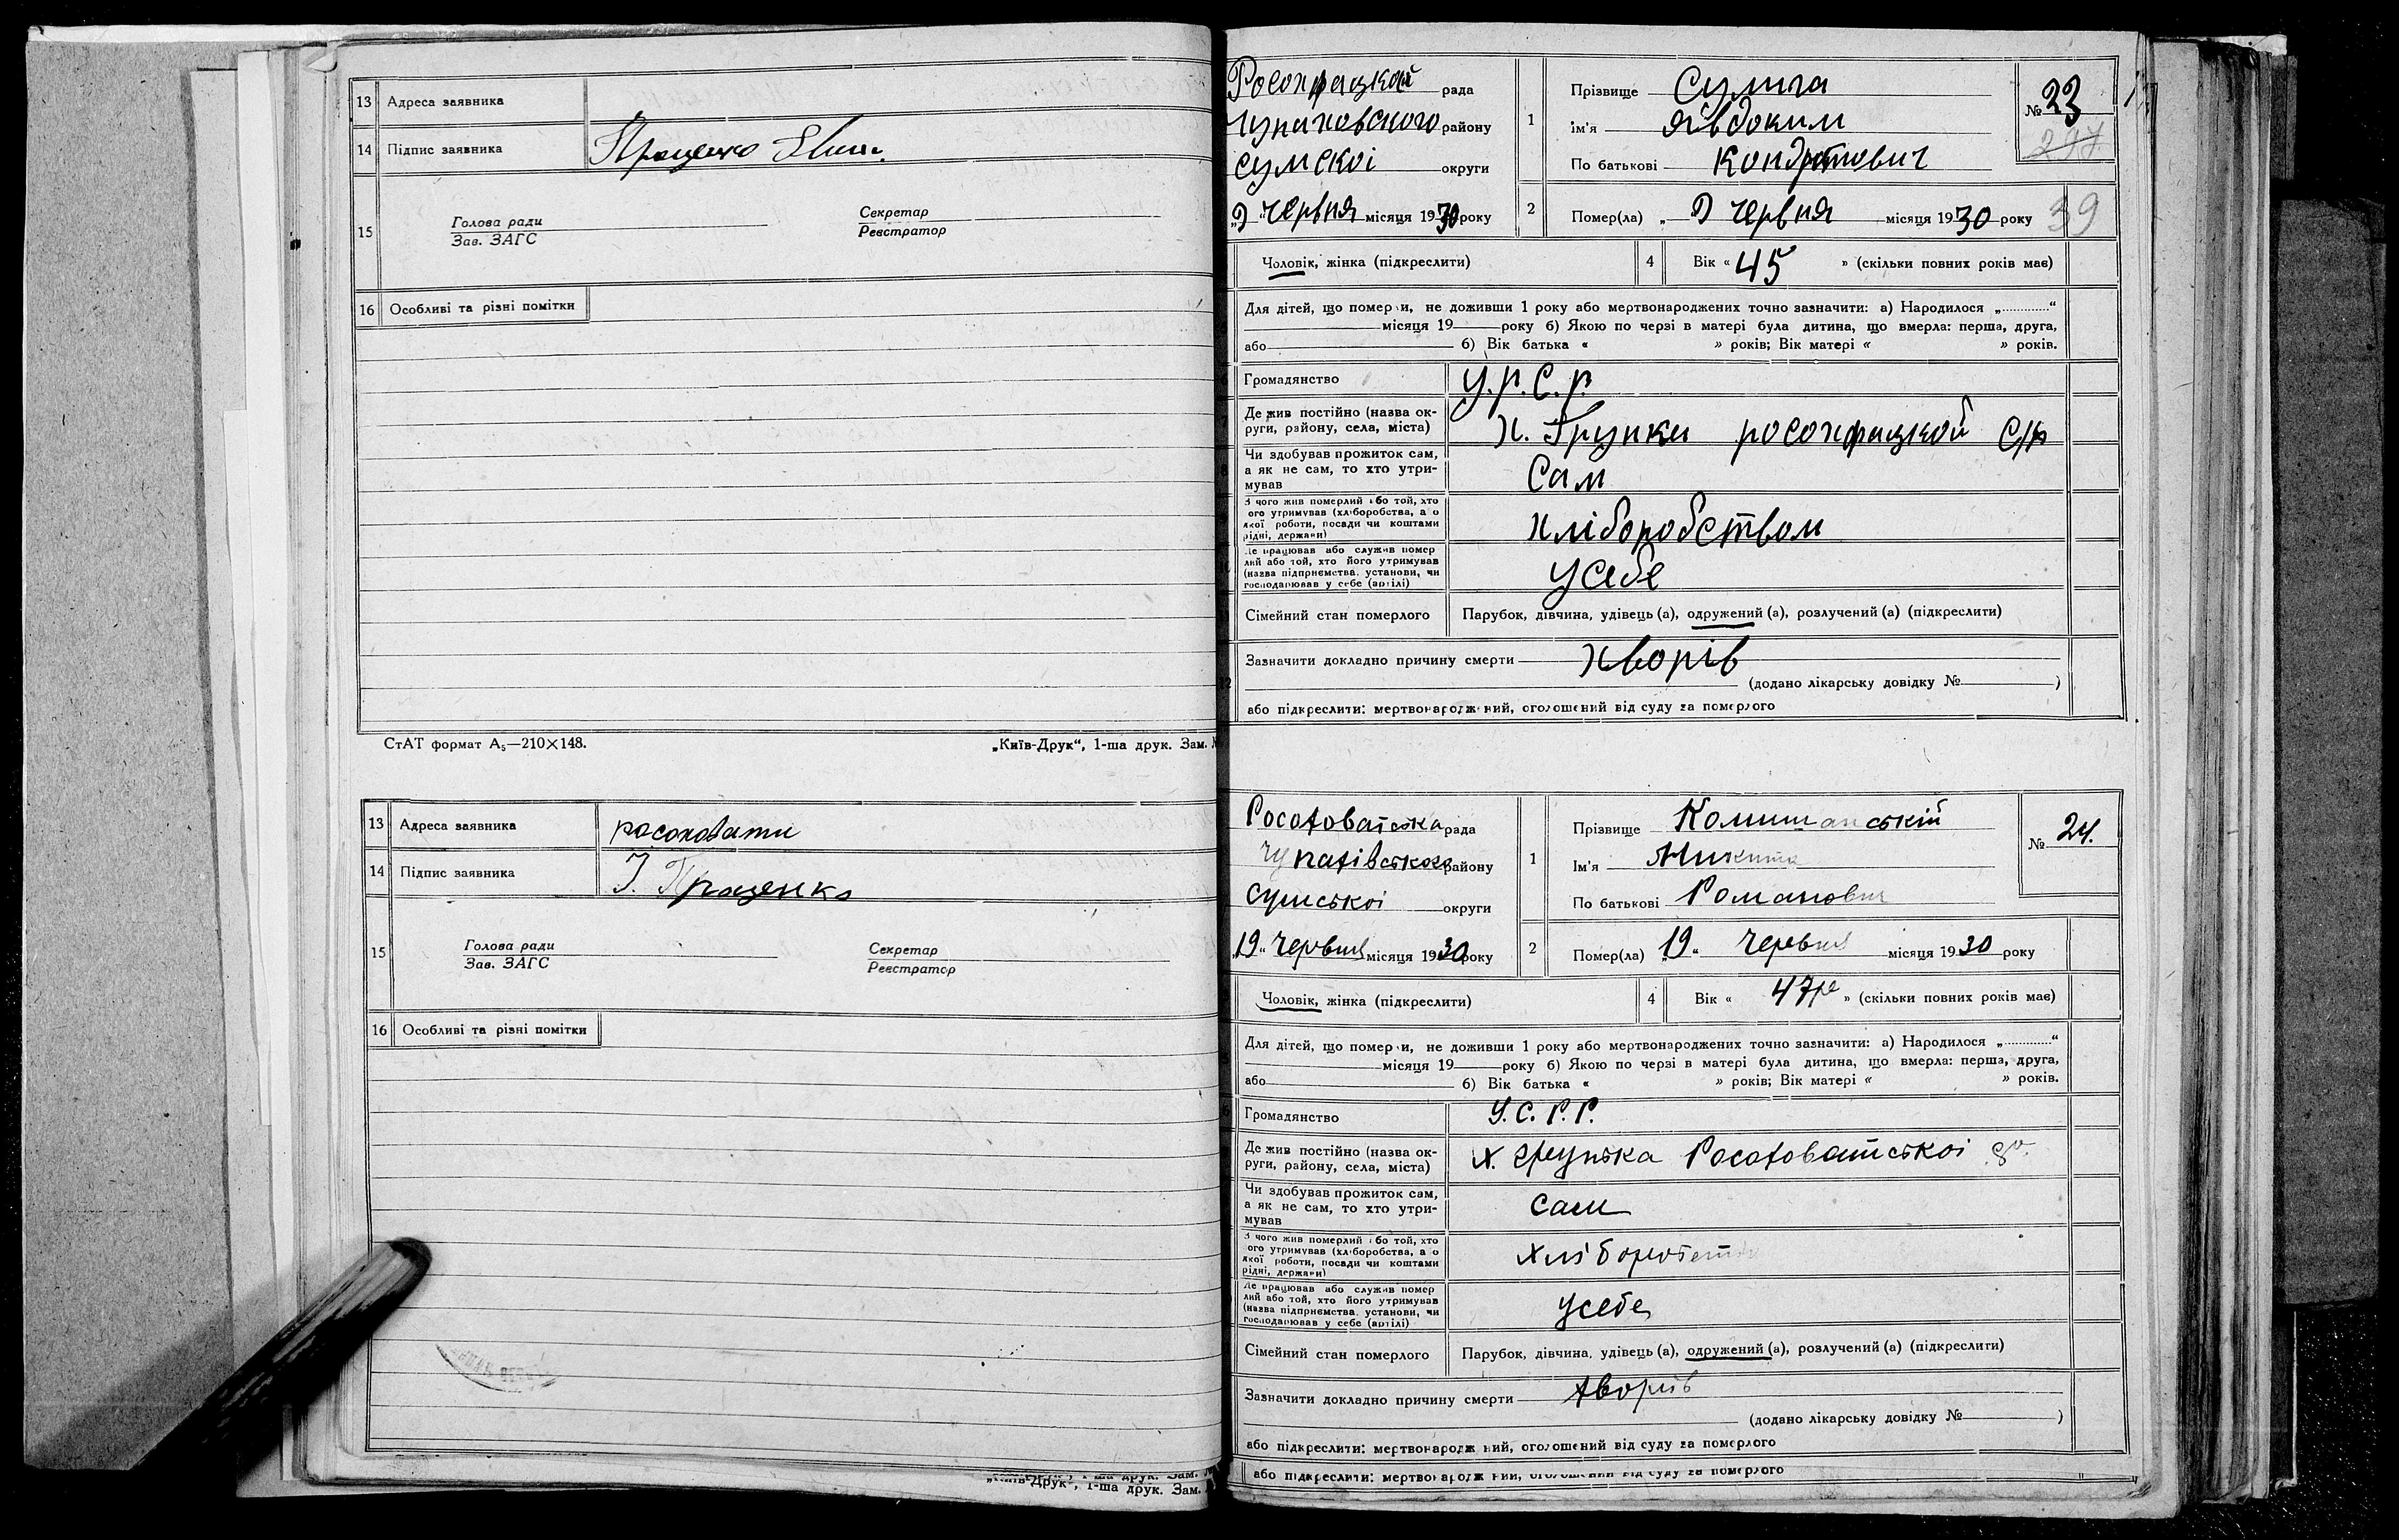 13 Адреса заявника
14 Підпис заявника Проценко
15 Голова ради Секретар
Зав. ЗАГС Реєстратор
16 Особливі та різні помітки
СтАТ формат А5—210×148. „Київ-Друк“, 1-ша друк. Зам.
13 Адреса заявника росоховати
14 Підпис заявника І. Проценко
15 Голова ради Секретар
Зав. ЗАГС Реєстратор
16 Особливі та різні помітки
„Київ-Друк“, 1-ша друк. Зам.
рада 1 Прізвище Сулига № 23
району Ім'я Явдоким 297
сумскоі округи По батькові Кондратович
„9 червня місяця 1930 року 2 Помер(ла) „ 9 червня місяця 1930 року 39
Чоловік, жінка (підкреслити) 4 Вік « 45 » (скільки повних років має)
Для дітей, що померли, не доживши 1 року або мертвонароджених точно зазначити: а) Народилося „............“
місяця 19 року б) Якою по черзі в матері була дитина, що вмерла: перша, друга,
або б) Вік батька « » років; Вік матері « » років.
Громадянство У.Р.С.Р.
Де жив постійно (назва ок-
руги, району, села, міста) х. Грунки росохфацкой С/р
Чи здобував прожиток сам,
а як не сам, то хто утри-
мував Сам
З чого жив померлий або той, хто
ого утримував (хліборобства, а о
якої роботи, посади чи коштами
рідні, держави) хліборобством
Де працював або служив помер
лий або той, хто його утримував
(назва підприємства, установи, чи
господарював у себе (артілі) усебе
Сімейний стан померлого Парубок, дівчина, удівець (а), одружений (а), розлучений (а) (підкреслити)
Зазначити докладно причину смерти хворів
12 (додано лікарську довідку № )
або підкреслити: мертвонароджений, оголошений від суду за померлого
Росоховатська рада 1 Прізвище Комишанській № 24.
Чупахівського району Ім'я Микита
Сумської округи По батькові Романович
„19“ Червня місяця 1930 року 2 Помер(ла) „19“ Червня місяця 1930 року
Чоловік, жінка (підкреслити) 4 Вік « 47р » (скільки повних років має)
Для дітей, що померли, не доживши 1 року або мертвонароджених точно зазначити: а) Народилося „............“
місяця 19 року б) Якою по черзі в матері була дитина, що вмерла: перша, друга,
або б) Вік батька « » років; Вік матері « » років.
Громадянство У.С.Р.Р.
Де жив постійно (назва ок-
руги, району, села, міста) х. Грунька Росоховатської
Чи здобував прожиток сам,
а як не сам, то хто утри-
мував сам
З чого жив померлий або той, хто
ого утримував (хліборобства, а о
якої роботи, посади чи коштами
рідні, держави) хліборобство
Де працював або служив помер
лий або той, хто його утримував
(назва підприємства, установи, чи
господарював у себе (артілі) усебе
Сімейний стан померлого Парубок, дівчина, удівець (а), одружений (а), розлучений (а) (підкреслити)
Зазначити докладно причину смерти хворів
(додано лікарську довідку № )
або підкреслити: мертвонароджений, оголошений від суду за померлого
або підкреслити: мертвонароджений, оголошений від суду за померлого